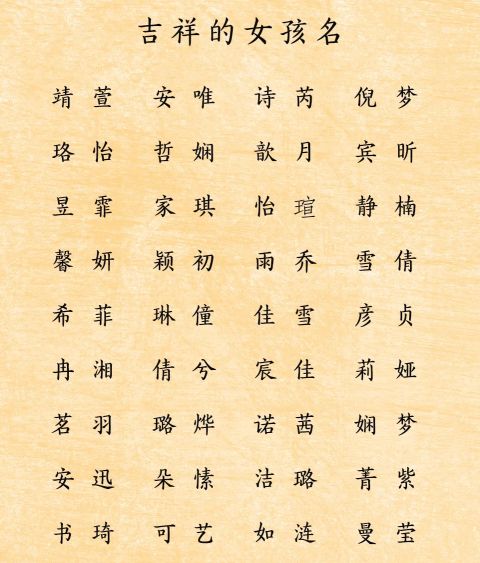 吉祥的女孩名
靖萱 安唯 诗芮 倪梦
珞怡 哲娴 歆月 宾昕
昱霏 家琪 怡瑄 静楠
馨妍 颖初 雨乔 雪倩
希菲 琳僮 佳雪 彦贞
冉湘 倩兮 宸佳 莉娅
茗羽 璐烨 诺茜 娴梦
安迅 朵愫 洁璐 菁紫
书琦 可艺 如涟 曼莹